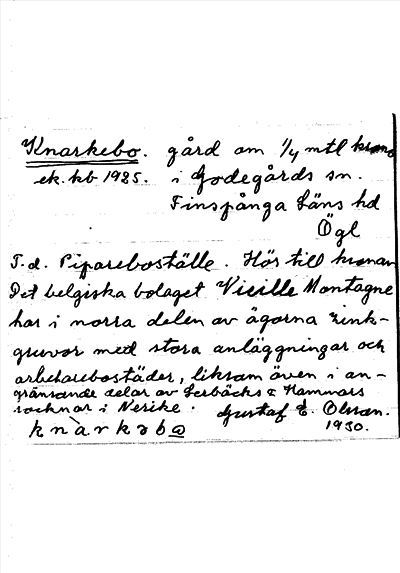 Knarkebo. gård om 1/4 mtl krono
ek. kb 1925. i Godegårds sn.
Finspånga Läns hd
Ögl
F.d. Pipareboställe. Hör till kronan
Det belgiska bolaget Vieille Montagne
har i norra delen av ägorna zink-
gruvor med stora anläggningar och
arbetarebostäder, liksom även i an-
gränsande delar av Lerbäcks & Hammars
socknar i Nerike.
Gustaf E. Olsson.
1930.
knàrkəbω